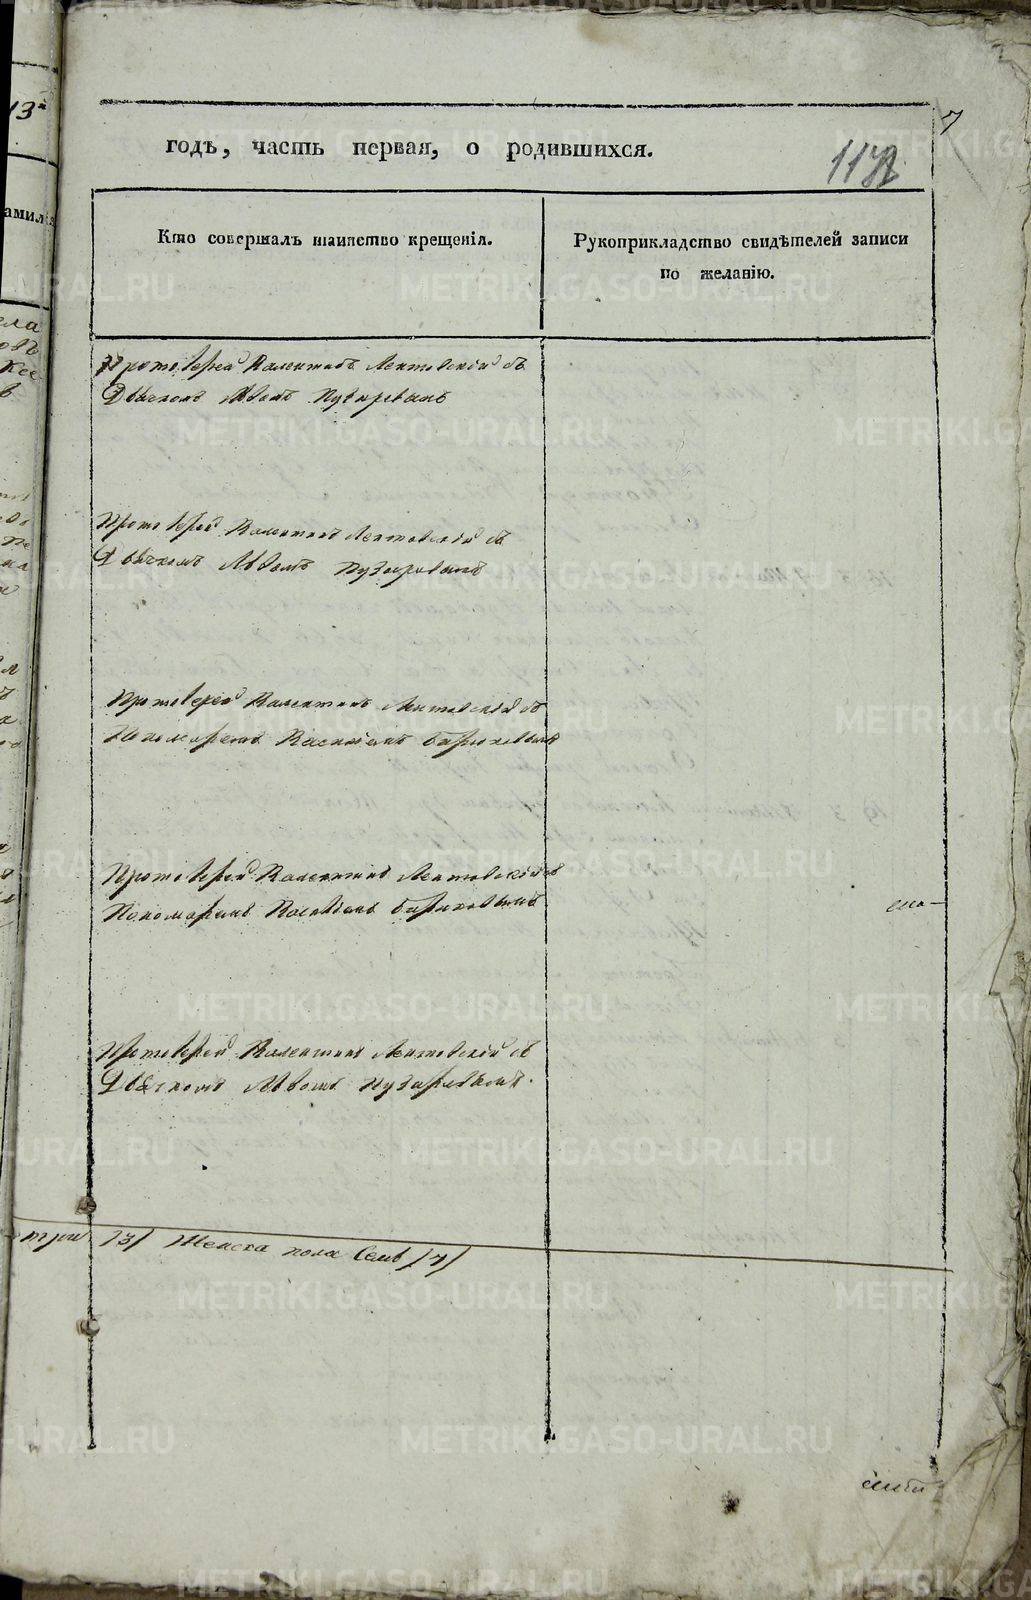 7
годъ, часть первая, о родившихся.
Кто совершалъ таинство крещенія.
Рукоприкладство свидѣтелей записи
по желанію.
Протоіерей Валентинъ Лентовскій съ
Дьячкомъ Львомъ Пузыревымъ
Протоіерей Валентинъ Лентовскій съ
Дьячкомъ Львомъ Пузыревымъ
Протоіерей Валентинъ Лентовскій съ
Пономаремъ Василіемъ Бирюковымъ
Протоіерей Валентинъ Лентовскій съ
Пономаремъ Василіемъ Бирюковымъ
Протоіерей Валентинъ Лентовскій съ
Дьячкомъ Львомъ Пузыревымъ.
три /3/ Женска пола Семь /7/
METRIKI.GASO-URAL.RU